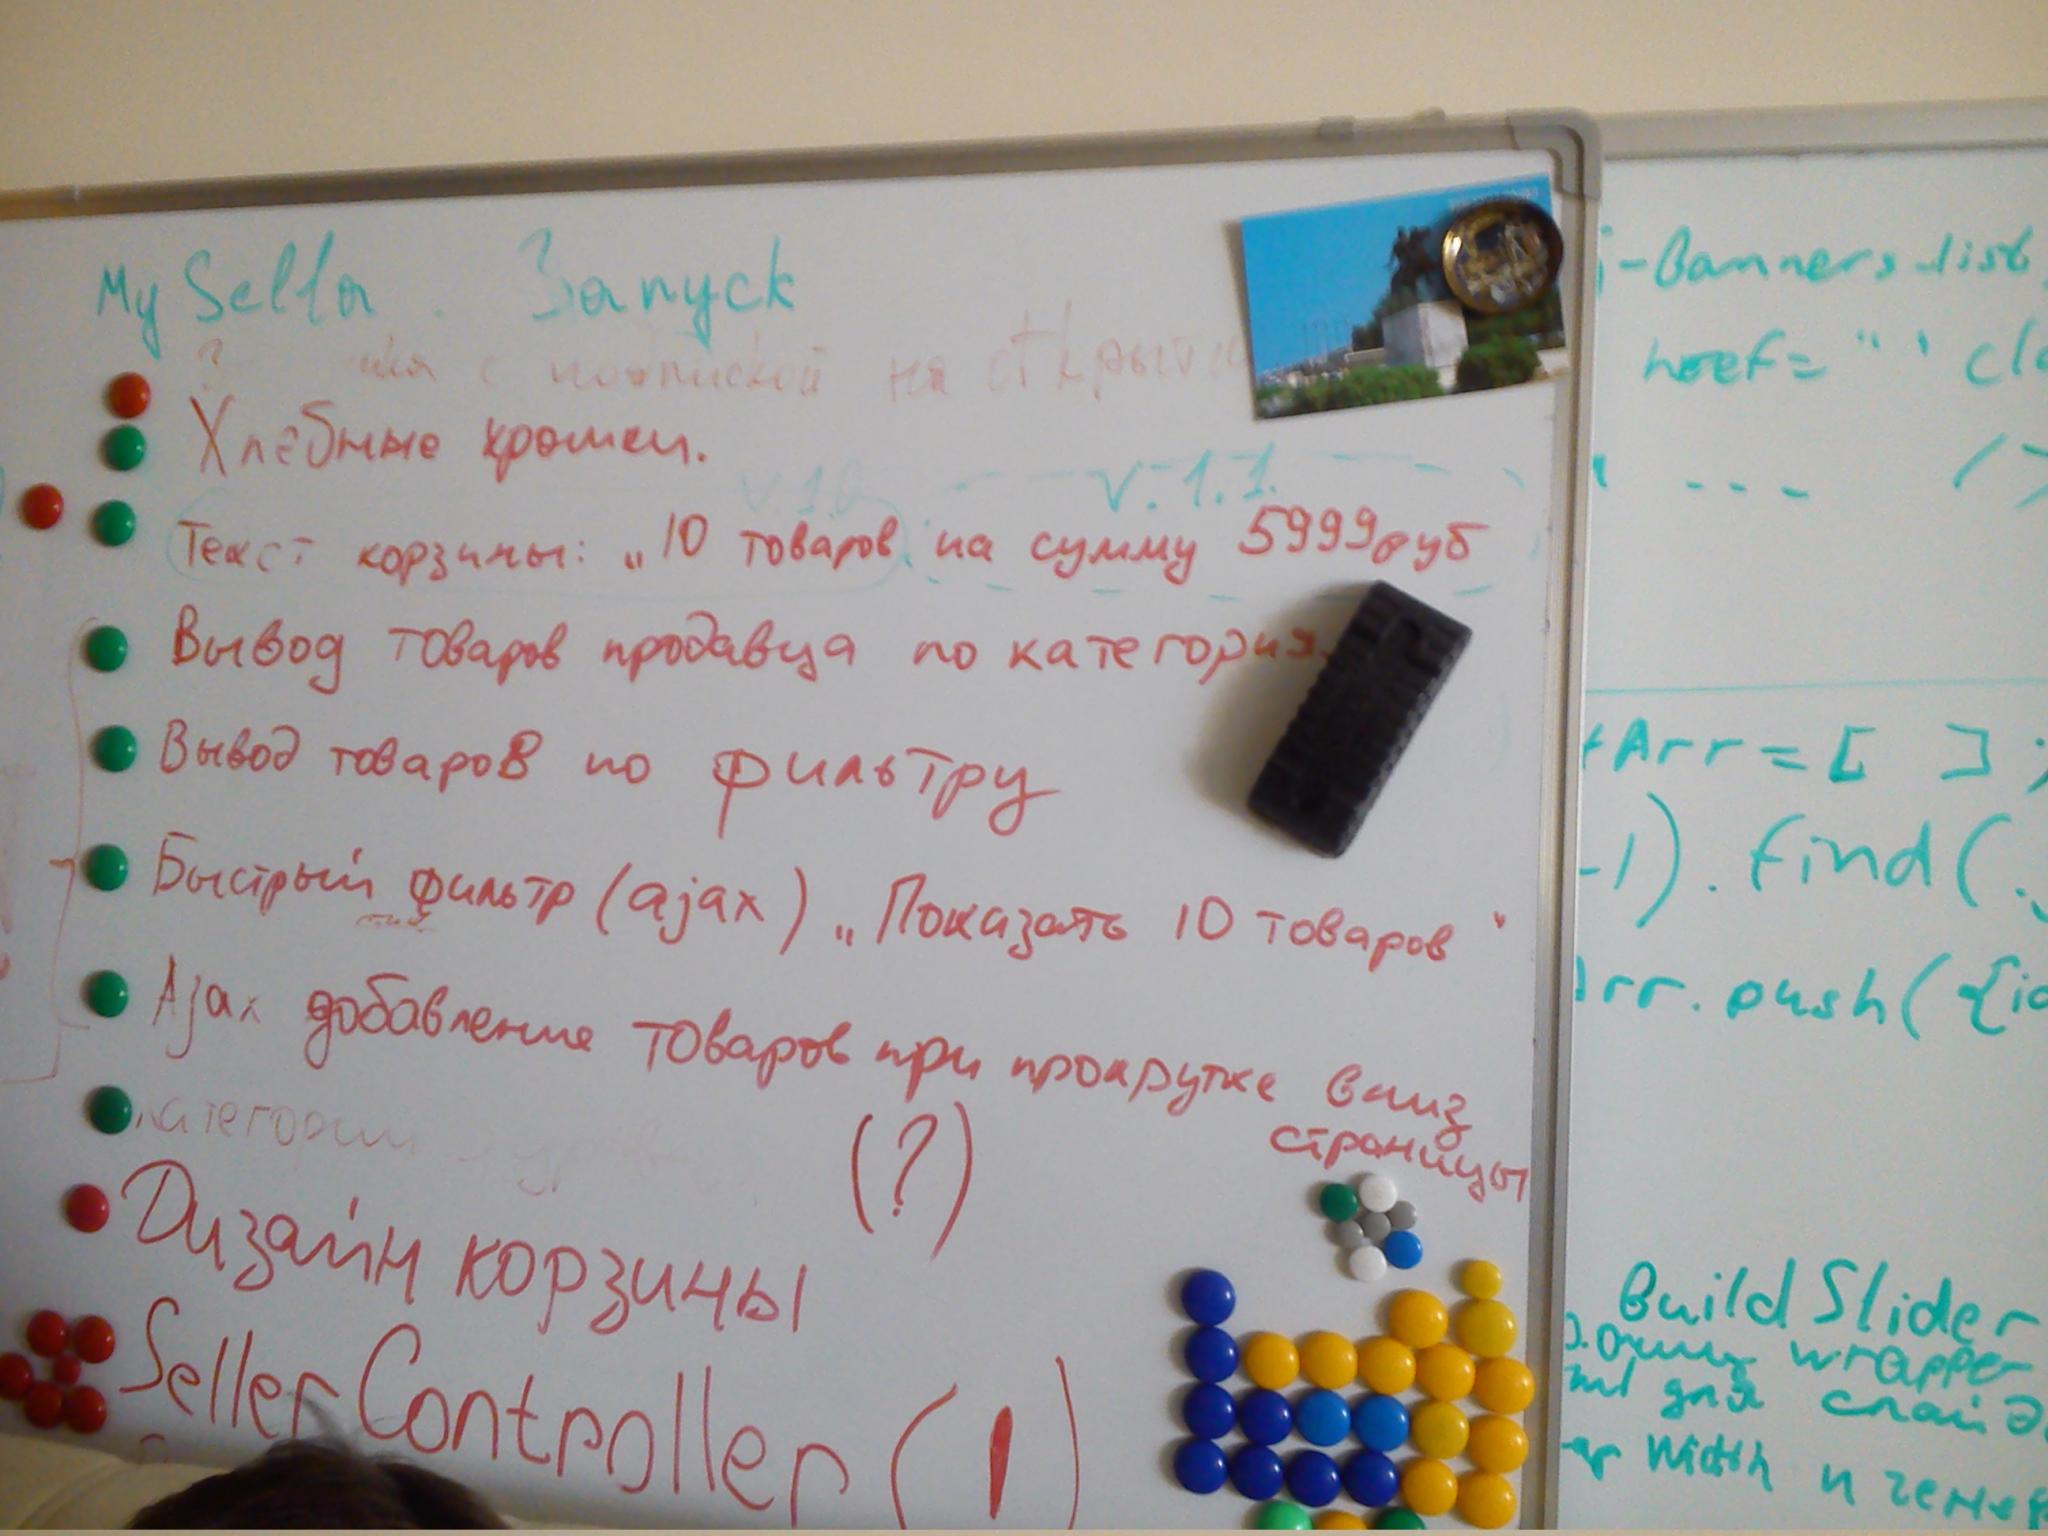 My Sella. Запуск
с подпиской на
Хлебные крошки.
v.1.0 v.1.1.
Текст корзины: „10 товаров на сумму 5999руб
Вывод товаров продавца по категория
Вывод товаров по фильтру
Быстрый фильтр (ajax) „Показать 10 товаров"
Ajax добавление товаров при прокрутке вниз
страницы
категории
(?)
Дизайн корзины
SellerController (!)
-Banners-list
href= "" cla
" --- />
tArr = [ ];
-1).find(.
Arr.push({id
Build Slider
wrapper
для слайд
width и